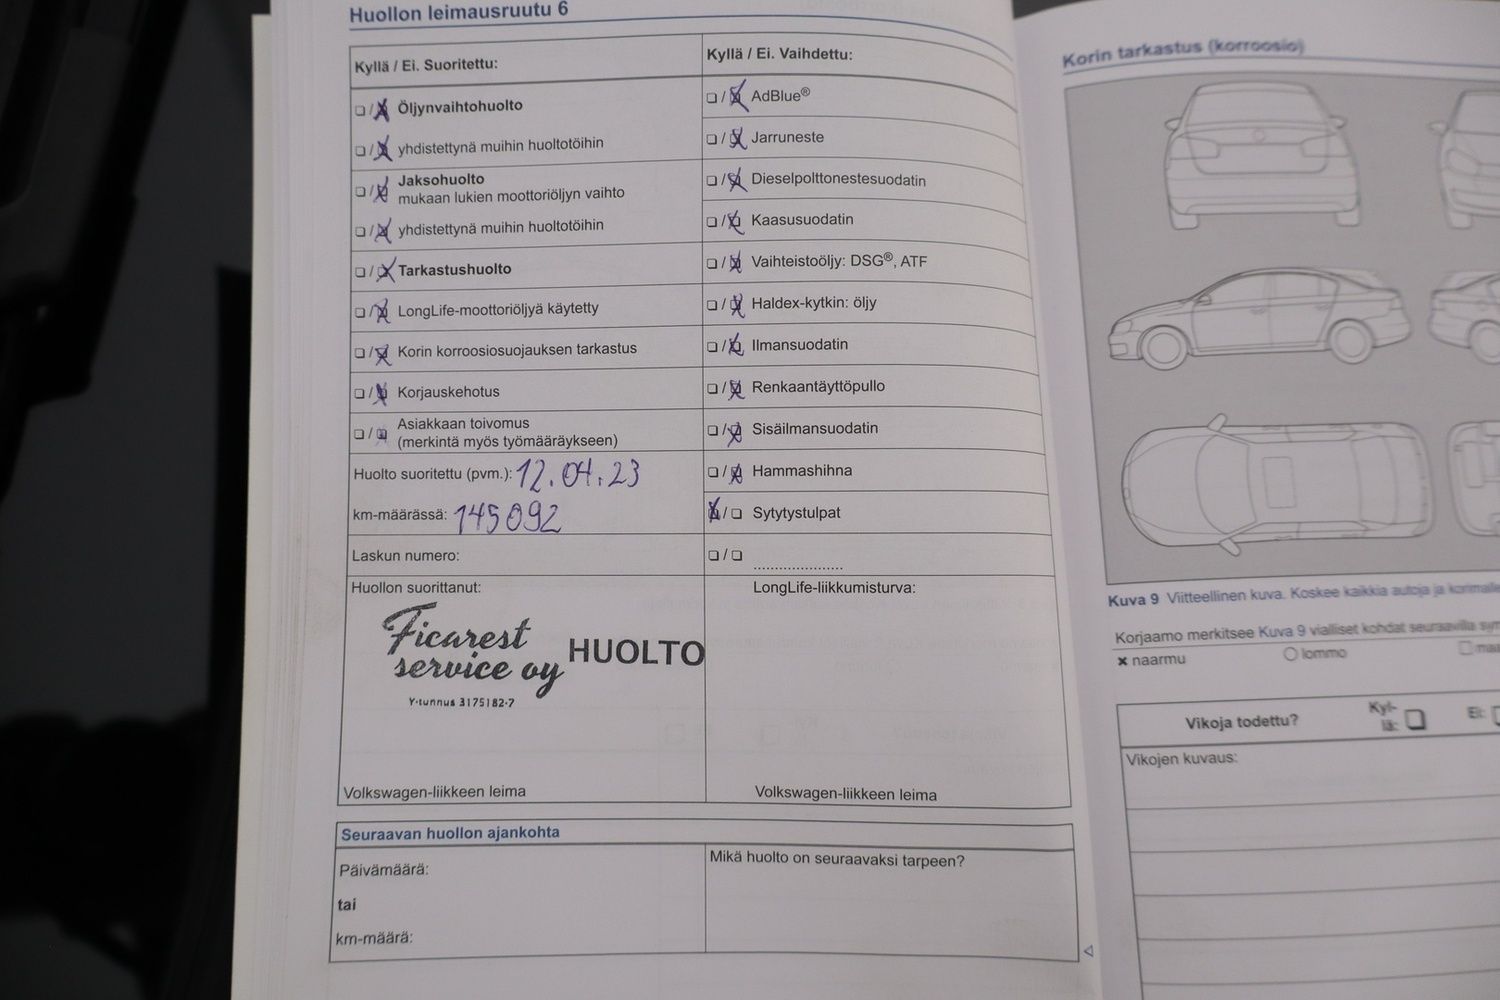 Huollon leimausruutu 6
Kyllä / Ei. Suoritettu:
Öljynvaihtohuolto
yhdistettynä muihin huoltotöihin
Jaksohuolto
mukaan lukien moottoriöljyn vaihto
yhdistettynä muihin huoltotöihin
Tarkastushuolto
LongLife-moottoriöljyä käytetty
Korin korroosiosuojauksen tarkastus
Korjauskehotus
Asiakkaan toivomus
(merkintä myös työmääräykseen)
Huolto suoritettu (pvm.): 12.04.23
km-määrässä: 145092
Laskun numero:
Huollon suorittanut:
Ficarest
service oy HUOLTO
Y-tunnus 3175182-7
Volkswagen-liikkeen leima
Kyllä / Ei. Vaihdettu:
AdBlue®
Jarruneste
Dieselpolttonestesuodatin
Kaasusuodatin
Vaihteistoöljy: DSG®, ATF
Haldex-kytkin: öljy
Ilmansuodatin
Renkaantäyttöpullo
Sisäilmansuodatin
Hammashihna
Sytytystulpat
LongLife-liikkumisturva:
Volkswagen-liikkeen leima
Seuraavan huollon ajankohta
Päivämäärä:
tai
km-määrä:
Mikä huolto on seuraavaksi tarpeen?
Korin tarkastus (korroosio)
Kuva 9 Viitteellinen kuva. Koskee kaikkia autoja ja
Korjaamo merkitsee Kuva 9 vialliset kohdat seuraavilla
naarmu
lommo
Vikoja todettu?
Kyl-
lä:
Ei:
Vikojen kuvaus: